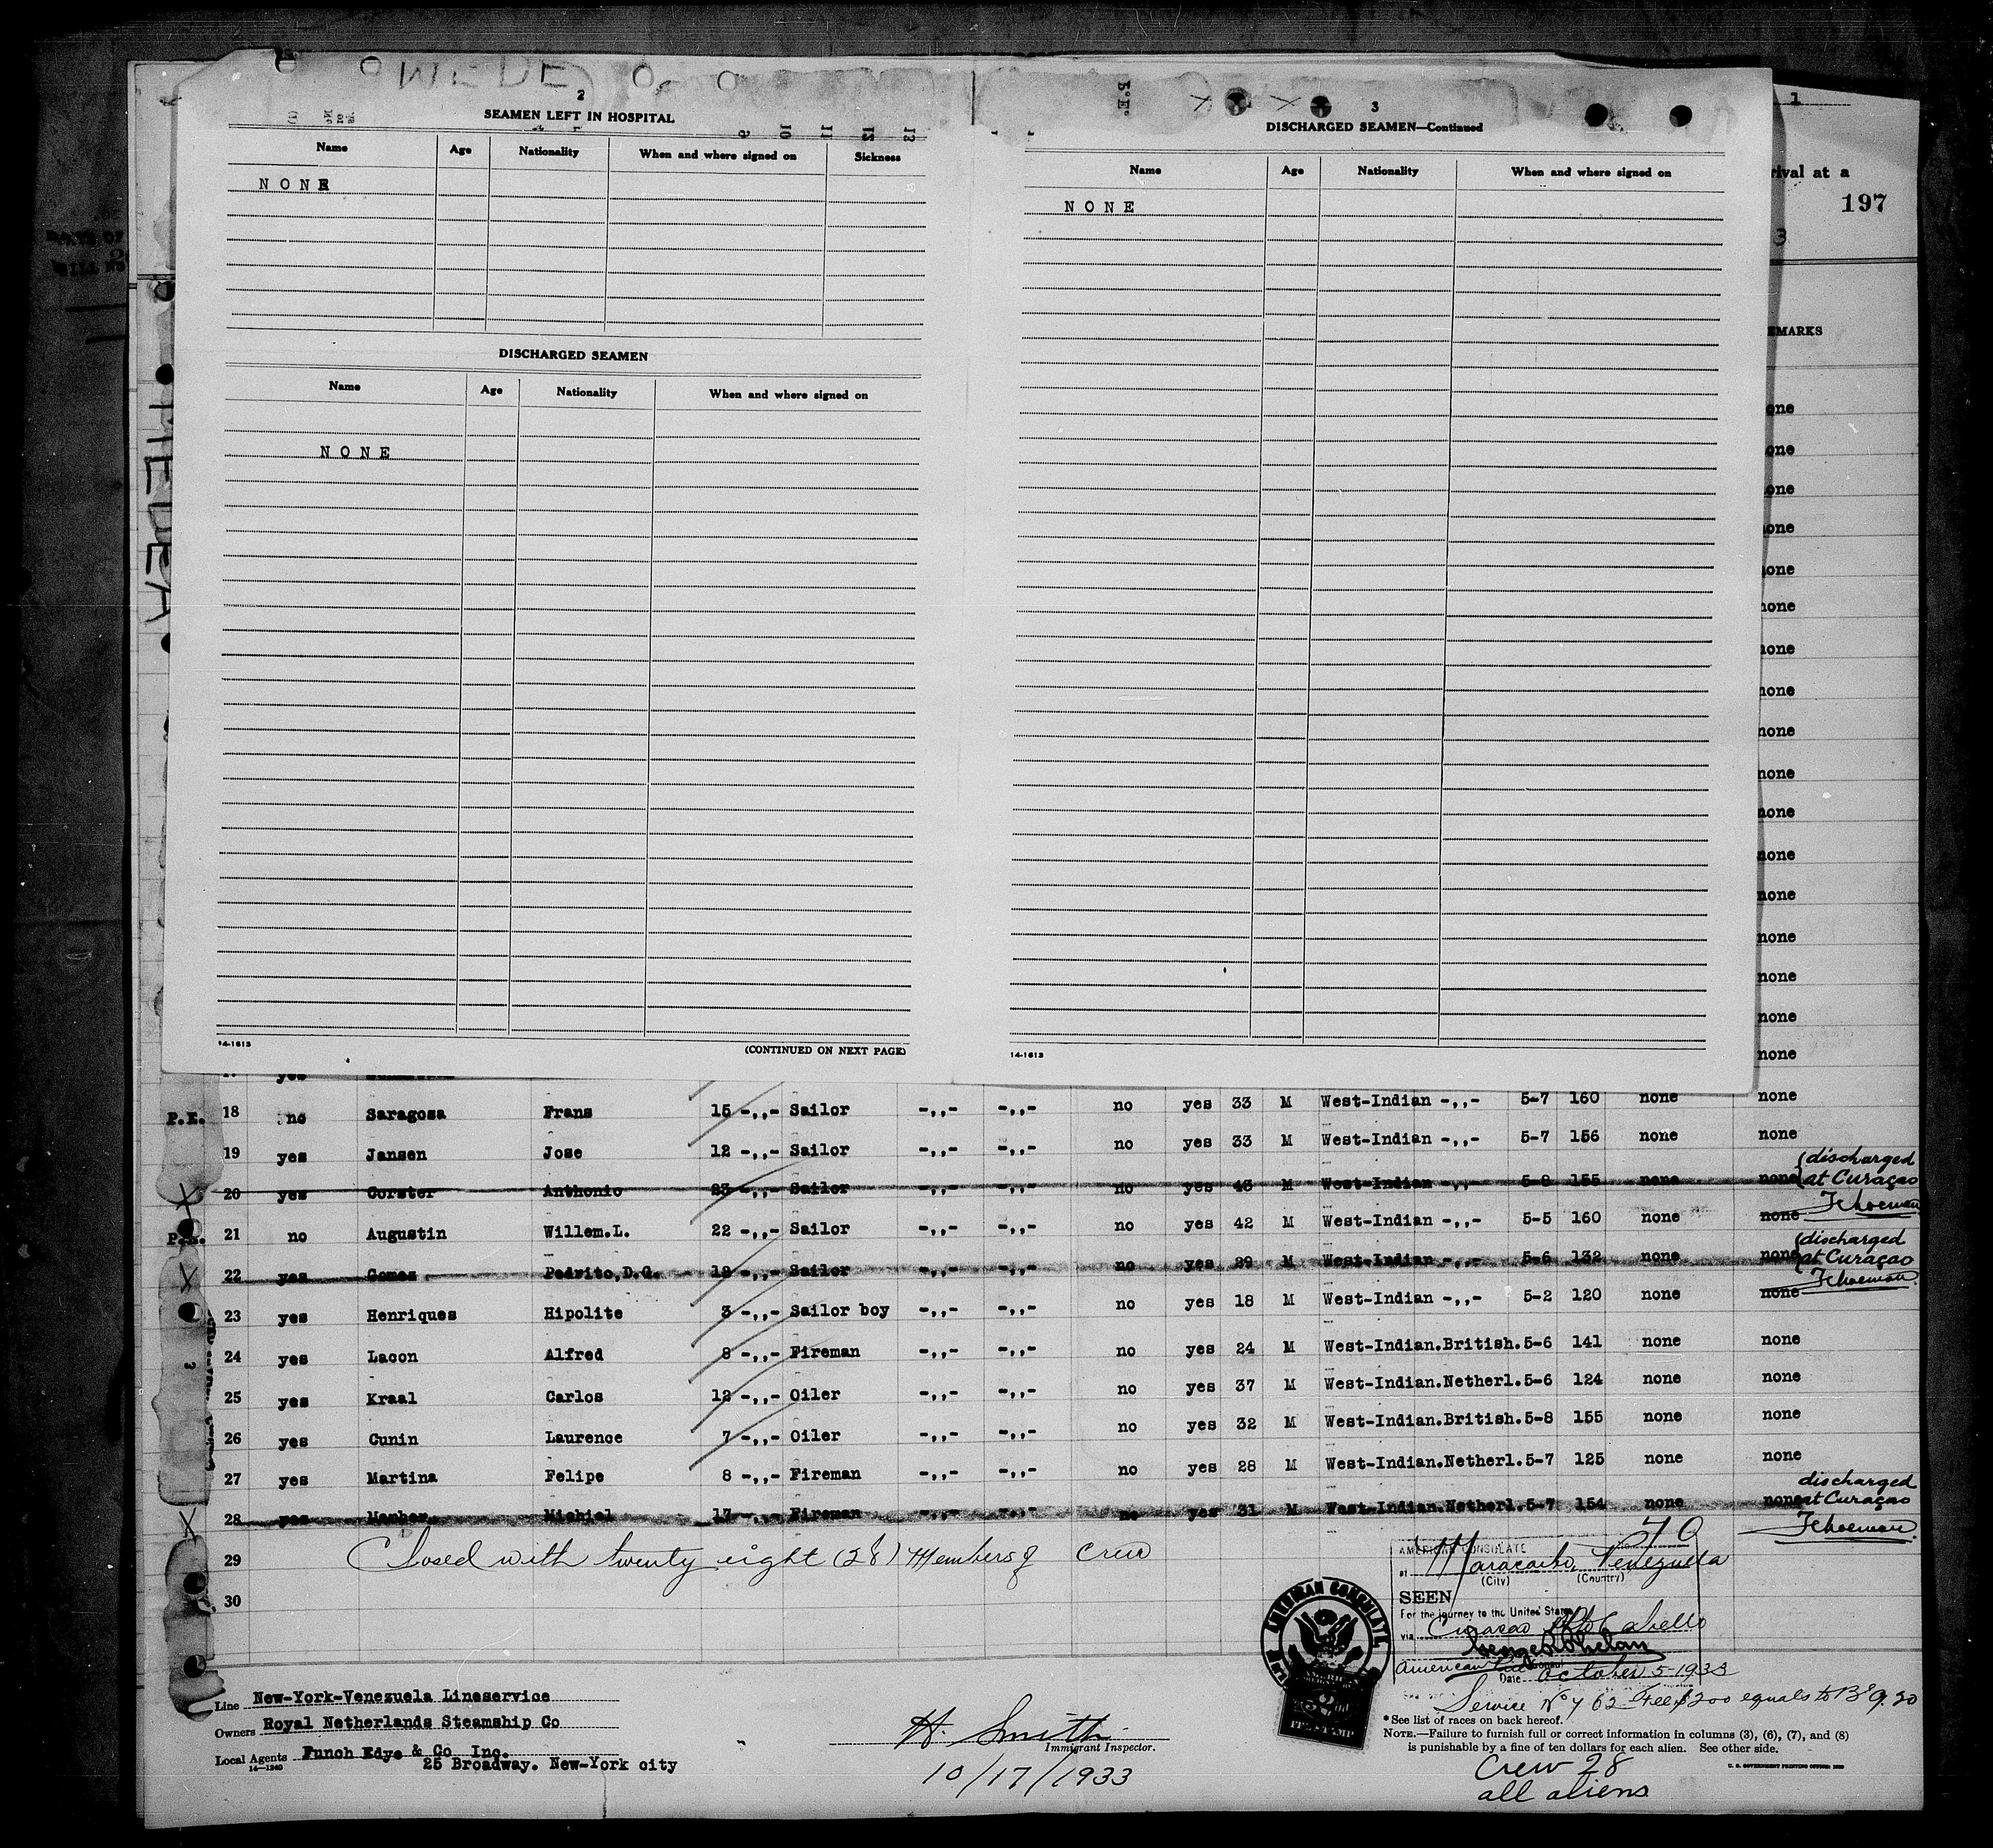 WEDE
2
SEAMEN LEFT IN HOSPITAL
Name Age Nationality When and where signed on Sickness
NONE
DISCHARGED SEAMEN
Name Age Nationality When and where signed on
NONE
14-1613
(CONTINUED ON NEXT PAGE)
P.E.
3
DISCHARGED SEAMEN—Continued
Name Age Nationality When and where signed on
NONE
14-1613
1
rival at a
197
3
EMARKS
one
one
one
one
one
none
none
none
none
none
none
none
none
none
none
none
none
MEDEA
P.E. 18 no Saragosa Frans 15 -,,- Sailor -,,- -,,- no yes 33 M West-Indian -,,- 5-7 160 none none
19 yes Jansen Jose 12 -,,- Sailor -,,- -,,- no yes 33 M West-Indian -,,- 5-7 156 none none
X 20 yes Corster Anthonio 23 -,,- Sailor -,,- -,,- no yes 43 M West-Indian -,,- 5-8 155 none none (discharged at Curaçao
P.E. 21 no Augustin Willem.L. 22 -,,- Sailor -,,- -,,- no yes 42 M West-Indian -,,- 5-5 160 none none
X 22 yes Gomez Pedrito,D.G. 18 -,,- Sailor -,,- -,,- no yes 29 M West-Indian -,,- 5-6 132 none none (discharged at Curaçao
23 yes Henriques Hipolite 3 -,,- Sailor boy -,,- -,,- no yes 18 M West-Indian -,,- 5-2 120 none none
24 yes Lacon Alfred 8 -,,- Fireman -,,- -,,- no yes 24 M West-Indian.British.5-6 141 none none
25 yes Kraal Carlos 12 -,,- Oiler -,,- -,,- no yes 37 M West-Indian.Netherl.5-6 124 none none
26 yes Cunin Laurence 7 -,,- Oiler -,,- -,,- no yes 32 M West-Indian.British.5-8 155 none none
27 yes Martina Felipe 8 -,,- Fireman -,,- -,,- no yes 28 M West-Indian.Netherl.5-7 125 none none
X 28 yes Michiel 17 -,,- Fireman -,,- -,,- no yes 31 M West-Indian.Netherl.5-7 154 none none discharged at Curaçao
29 Closed with twenty eight (28) Members of crew
30
AMERICAN CONSULATE
at Maracaibo, Venezuela
(City) (Country)
SEEN
For the journey to the United States
via Curaçao Pto Cabello
Date October 5-1933
AMERICAN CONSULATE
Service No 762 Fee $2.00 equals to Bs 9.20
Line New-York-Venezuela Lineservice
Owners Royal Netherlands Steamship Co
Local Agents Funch Edye & Co Inc.
25 Broadway. New-York city
14—1240
H. Smith
Immigrant Inspector.
10/17/1933
* See list of races on back hereof.
NOTE.—Failure to furnish full or correct information in columns (3), (6), (7), and (8)
is punishable by a fine of ten dollars for each alien. See other side.
U. S. GOVERNMENT PRINTING OFFICE
Crew 28
all aliens